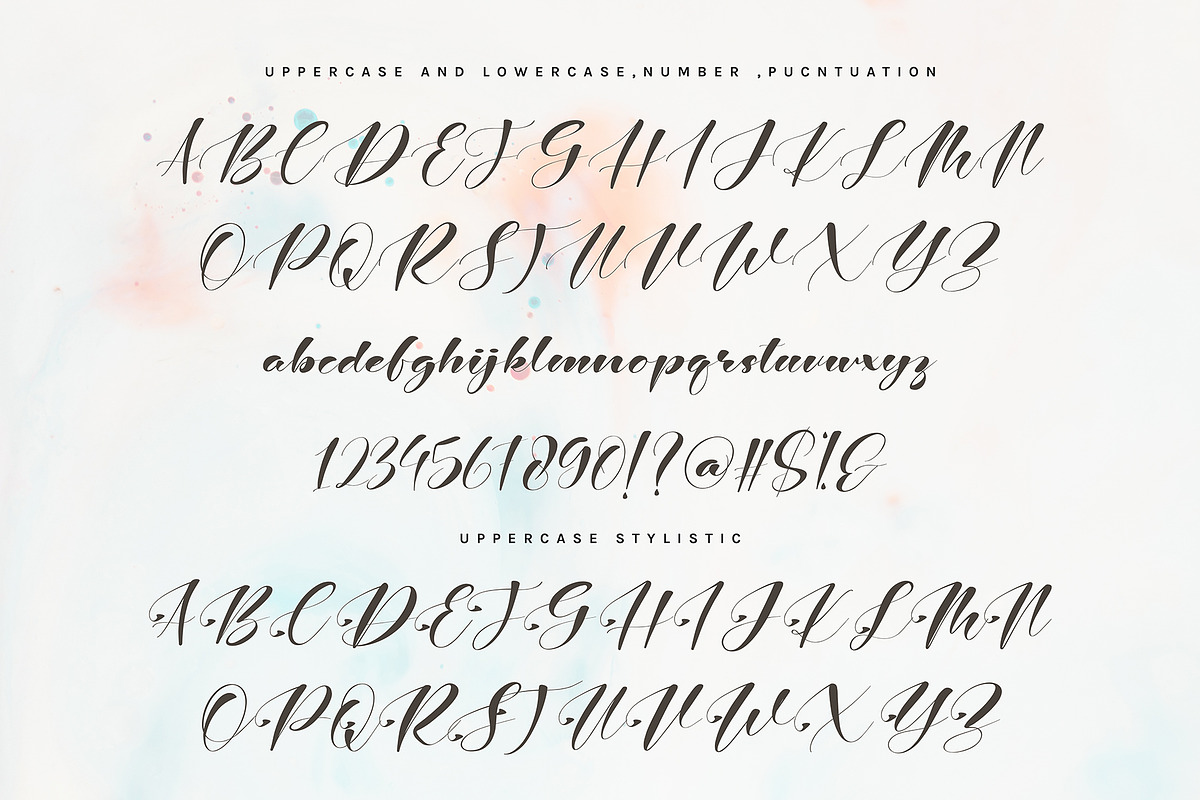 UPPERCASE AND LOWERCASE,NUMBER ,PUCNTUATION
ABCDEFGHIJKLMN
OPQRSTUVWXYZ
abcdefghijklmnopqrstuvwxyz
1234567890!?@#$!&
UPPERCASE STYLISTIC
ABCDEFGHIJKLMN
OPQRSTUVWXYZ